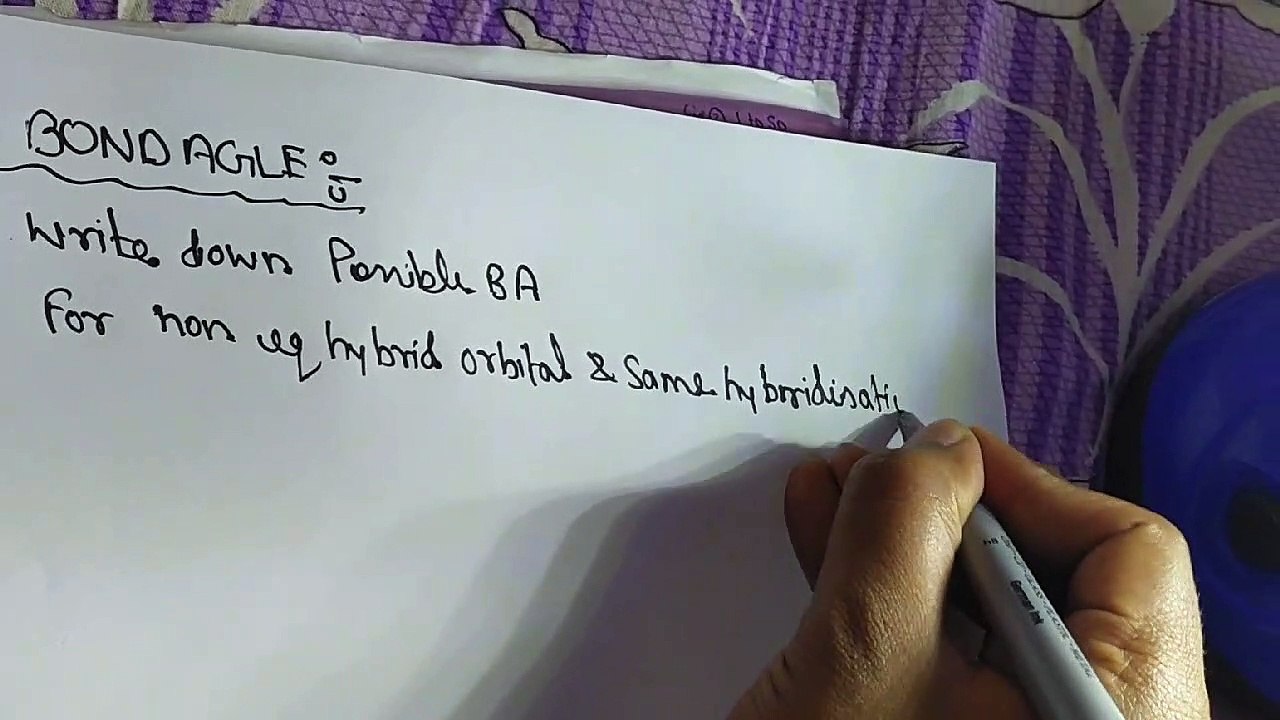 BOND AGLE :-
Write down Possible BA
For non eq hybrid orbital & Same hybridisati